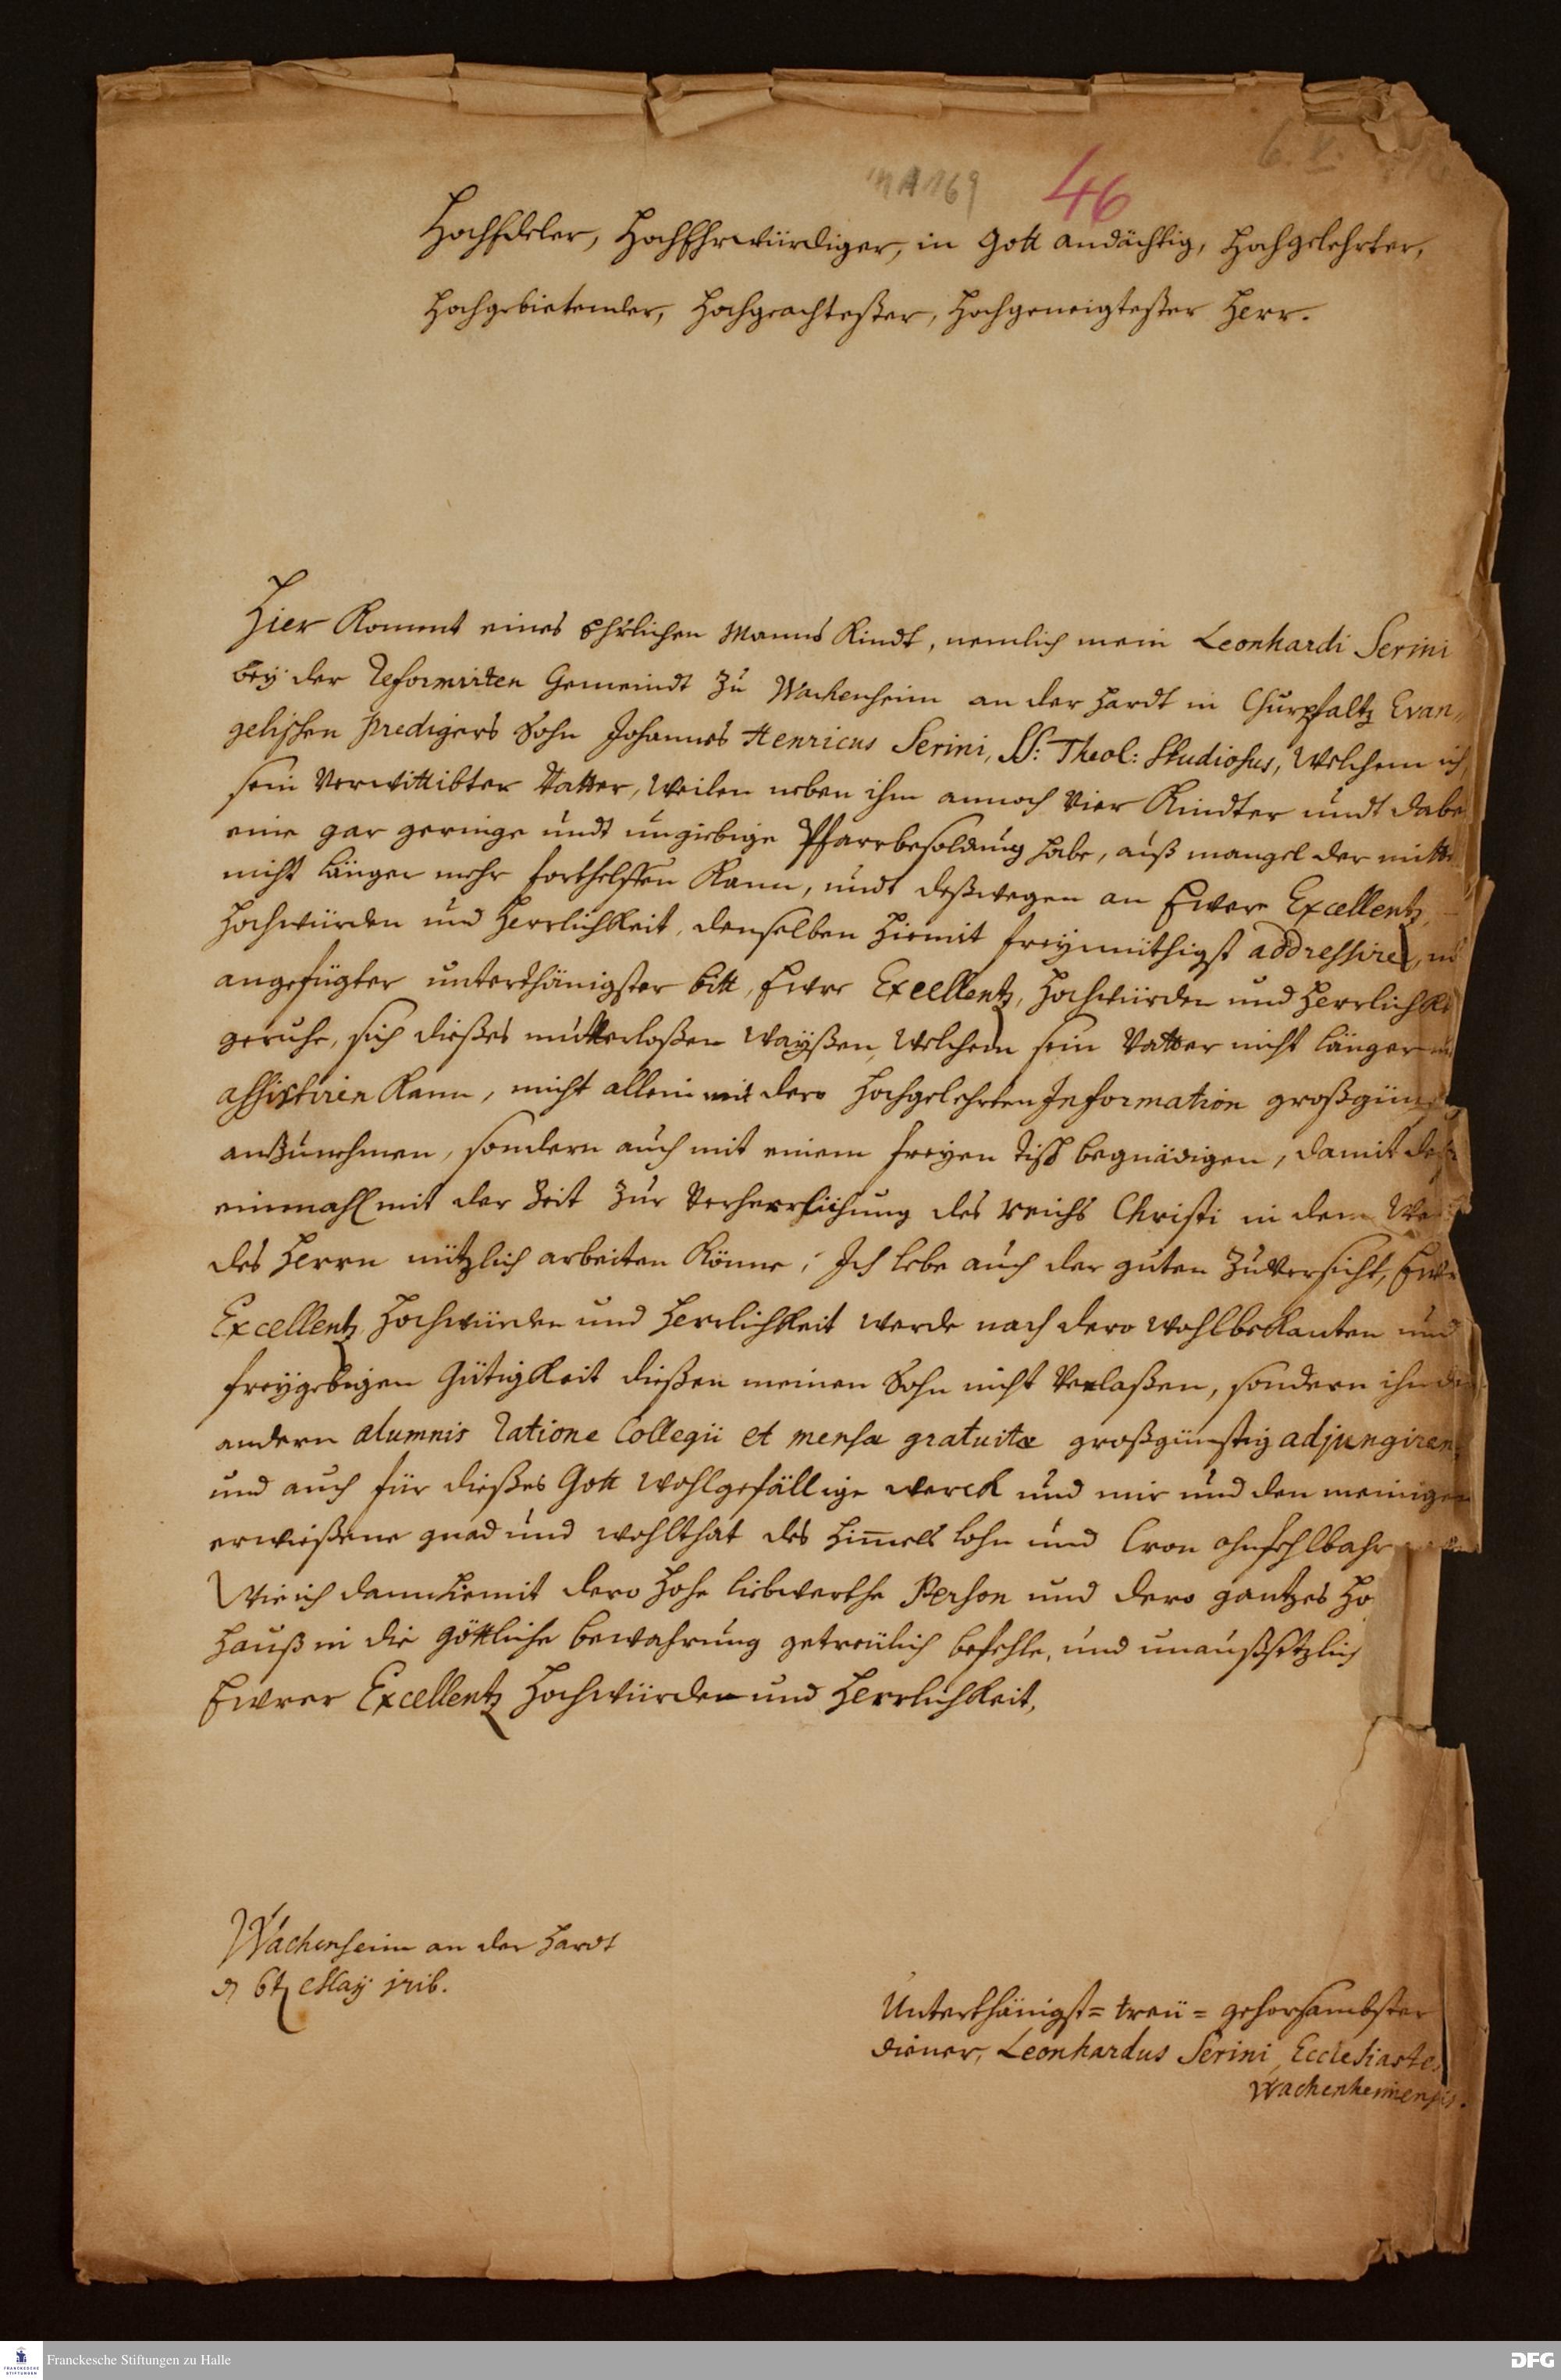 169 46
HochEdeler, HochEhrwürdiger, in Gott andächtig, Hochgelehrter,
Hochgebietender, Hochgeachtester, Hochgeneigtester Herr.
Hier Kommt eines Ehrlichen Manns Kindt, nemlich mein Leonhardi Serini
bey der Reformirten Gemeindt zu Wachenheim an der Hardt in Churpfaltz Evan„
gelischen Predigers Sohn Johannes Henricus Serini, SS: Theol: Studiosus, Welchem ich,
sein Verwittibter Vatter, Weilen neben ihm annoch Vier Kindter undt dabe
eine gar geringe undt ungiebige Pfarrbesoldung habe, auß mangel der mitt
nicht länger mehr forthelffen Kann, undt deßwegen an Ewer Excellentz,
Hochwürden und Herrlichkeit, denselben hiemit freymüthigst addressire,
angefügter unterthänigster bitt, Ewre Excellentz, Hochwürden und Herrlichke
geruhe, sich dießes mutterloßen Wayßen, Welchem sein Vatter nicht länger
assistiren Kann, nicht allein mit dero Hochgelehrten Information großgün
anzunehmen, sondern auch mit einem freyen tisch begnädigen, damit
einmahl mit der Zeit zur Verherrlichung des reichs Christi in dem
des Herrn nützlich arbeiten Könne; Ich lebe auch der guten Zuversicht, Ewr
Excellentz Hochwürden und Herrlichkeit werde nach dero wohlbekanten und
freygebigen Gütigkeit dießen meinen Sohn nicht Verlaßen, sondern ihn
andern alumnis ratione Collegii et mensæ gratuitæ großgünstig adjungiren
und auch für dießes Gott wohlgefällige werck und mir und den meinigen
erwießene gnad und wohlthat des Himels lohn und Cron ohnfehlbahr
Wie ich dann hiemit dero Hohe liebwerthe Person und dero gantzes Ho
Hauß in die göttliche bewahrung getreulich befehle, und unaußsetzlich
Ewrer Excellentz Hochwürden und Herrlichkeit,
Wachenheim an der Hardt
d 6t May 1716.
Unterthänigst= treu= gehorsambster
diener, Leonhardus Serini Ecclesiastes
Wachenheimensis.
Franckesche Stiftungen zu Halle
DFG